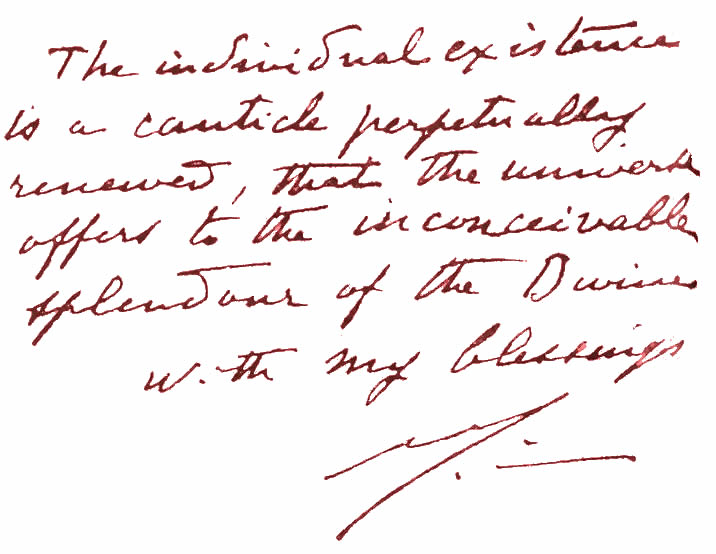 The individual existence
is a canticle perpetually
renewed, that the universe
offers to the inconceivable
splendour of the Divine.
with my blessings